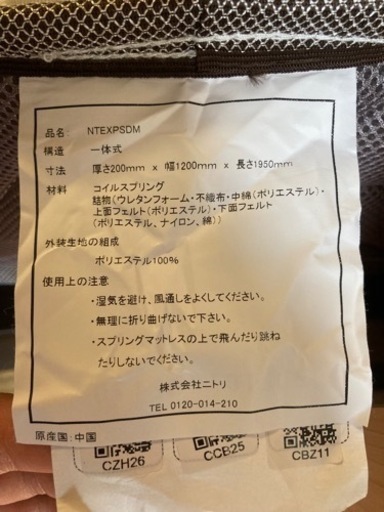 品名: NTEXPSDM
構造 一体式
寸法 厚さ200mm x 幅1200mm x 長さ1950mm
材料 コイルスプリング
詰物(ウレタンフォーム・不織布・中綿(ポリエステル)・
上面フェルト(ポリエステル)・下面フェルト
(ポリエステル、ナイロン、綿))
外装生地の組成
ポリエステル100%
使用上の注意
・湿気を避け、風通しをよくしてください。
・無理に折り曲げないで下さい。
・スプリングマットレスの上で飛んだり跳ね
たりしないでください。
株式会社ニトリ
TEL 0120-014-210
原産国:中国
CZH26 CCB25 CBZ11